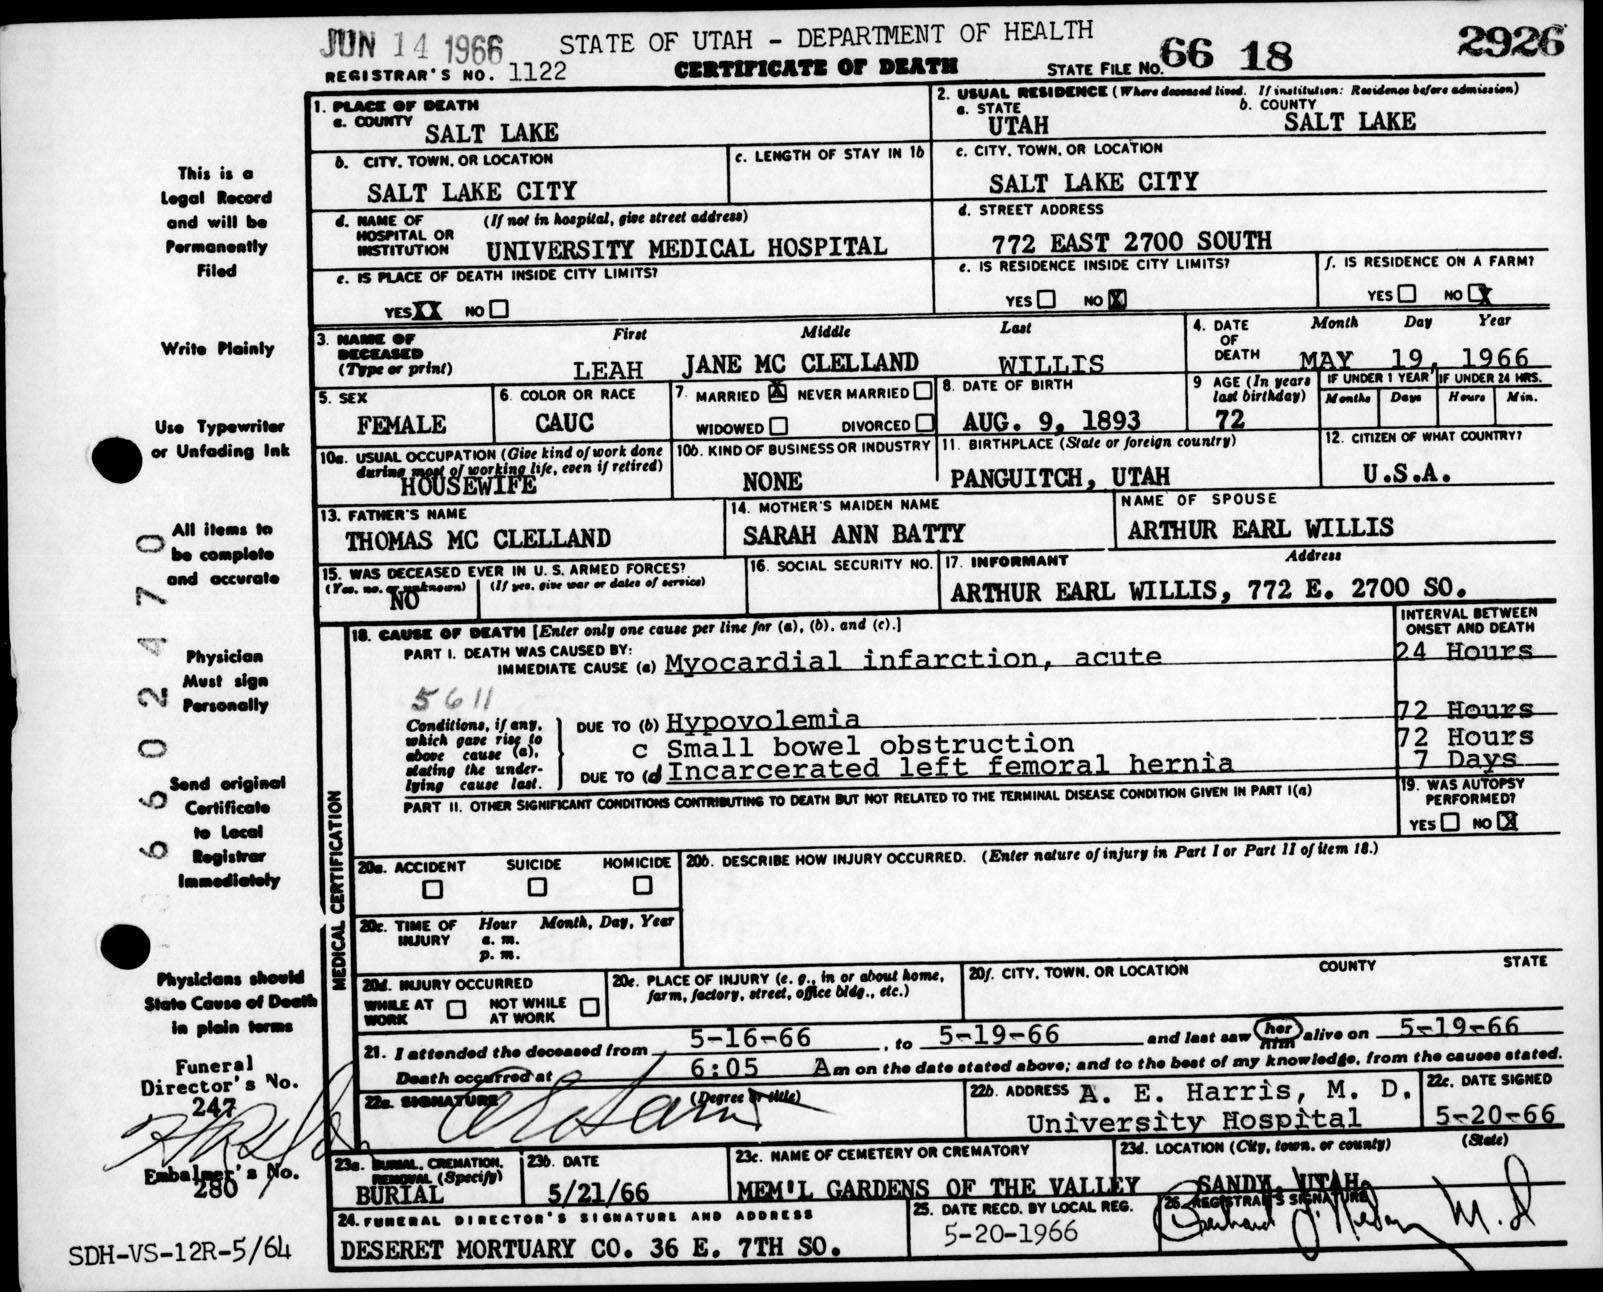 JUN 14 1966 STATE OF UTAH - DEPARTMENT OF HEALTH 2926
REGISTRAR'S NO. 1122 CERTIFICATE OF DEATH STATE FILE NO. 66 18
1. PLACE OF DEATH
a. COUNTY SALT LAKE
2. USUAL RESIDENCE (Where deceased lived. If institution: Residence before admission)
a. STATE UTAH b. COUNTY SALT LAKE
b. CITY, TOWN, OR LOCATION SALT LAKE CITY
c. LENGTH OF STAY IN 1b
c. CITY, TOWN, OR LOCATION SALT LAKE CITY
d. NAME OF HOSPITAL OR INSTITUTION (If not in hospital, give street address) UNIVERSITY MEDICAL HOSPITAL
d. STREET ADDRESS 772 EAST 2700 SOUTH
e. IS PLACE OF DEATH INSIDE CITY LIMITS?
YES XX NO
e. IS RESIDENCE INSIDE CITY LIMITS?
YES NO X
f. IS RESIDENCE ON A FARM?
YES NO X
3. NAME OF DECEASED (Type or print) First Middle Last
LEAH JANE MC CLELLAND WILLIS
4. DATE OF DEATH Month Day Year
MAY 19, 1966
5. SEX FEMALE
6. COLOR OR RACE CAUC
7. MARRIED X NEVER MARRIED
WIDOWED DIVORCED
8. DATE OF BIRTH AUG. 9, 1893
9 AGE (In years last birthday) 72
IF UNDER 1 YEAR Months Days
IF UNDER 24 HRS. Hours Min.
10a. USUAL OCCUPATION (Give kind of work done during most of working life, even if retired) HOUSEWIFE
10b. KIND OF BUSINESS OR INDUSTRY NONE
11. BIRTHPLACE (State or foreign country) PANGUITCH, UTAH
12. CITIZEN OF WHAT COUNTRY? U.S.A.
13. FATHER'S NAME THOMAS MC CLELLAND
14. MOTHER'S MAIDEN NAME SARAH ANN BATTY
NAME OF SPOUSE ARTHUR EARL WILLIS
15. WAS DECEASED EVER IN U. S. ARMED FORCES?
(Yes, no, or unknown) (If yes, give war or dates of service)
NO
16. SOCIAL SECURITY NO.
17. INFORMANT Address
ARTHUR EARL WILLIS, 772 E. 2700 SO.
MEDICAL CERTIFICATION
18. CAUSE OF DEATH [Enter only one cause per line for (a), (b), and (c).]
INTERVAL BETWEEN ONSET AND DEATH
PART I. DEATH WAS CAUSED BY:
IMMEDIATE CAUSE (a) Myocardial infarction, acute 24 Hours
5611
Conditions, if any, which gave rise to above cause (a), stating the underlying cause last.
DUE TO (b) Hypovolemia 72 Hours
c Small bowel obstruction 72 Hours
DUE TO (d Incarcerated left femoral hernia 7 Days
PART II. OTHER SIGNIFICANT CONDITIONS CONTRIBUTING TO DEATH BUT NOT RELATED TO THE TERMINAL DISEASE CONDITION GIVEN IN PART I(a)
19. WAS AUTOPSY PERFORMED?
YES NO X
20a. ACCIDENT SUICIDE HOMICIDE
20b. DESCRIBE HOW INJURY OCCURRED. (Enter nature of injury in Part I or Part II of item 18.)
20c. TIME OF INJURY Hour Month, Day, Year
a. m.
p. m.
20d. INJURY OCCURRED
WHILE AT WORK NOT WHILE AT WORK
20e. PLACE OF INJURY (e. g., in or about home, farm, factory, street, office bldg., etc.)
20f. CITY, TOWN, OR LOCATION COUNTY STATE
21. I attended the deceased from 5-16-66, to 5-19-66 and last saw her him alive on 5-19-66
Death occurred at 6:05 Am on the date stated above; and to the best of my knowledge, from the causes stated.
22a. SIGNATURE (Degree or title)
A E Harris
22b. ADDRESS A. E. Harris, M. D.
University Hospital
22c. DATE SIGNED
5-20-66
23a. BURIAL, CREMATION, REMOVAL (Specify)
BURIAL
23b. DATE
5/21/66
23c. NAME OF CEMETERY OR CREMATORY
MEM'L GARDENS OF THE VALLEY
23d. LOCATION (City, town, or county) (State)
SANDY, UTAH
24. FUNERAL DIRECTOR'S SIGNATURE AND ADDRESS
DESERET MORTUARY CO. 36 E. 7TH SO.
25. DATE RECD. BY LOCAL REG.
5-20-1966
26. REGISTRAR'S SIGNATURE
M.D
This is a
Legal Record
and will be
Permanently
Filed
Write Plainly
Use Typewriter
or Unfading Ink
All items to
be complete
and accurate
Physician
Must sign
Personally
Send original
Certificate
to Local
Registrar
Immediately
Physicians should
State Cause of Death
in plain terms
Funeral
Director's No.
247
Embalmer's No.
280
66 024770
SDH-VS-12R-5/64